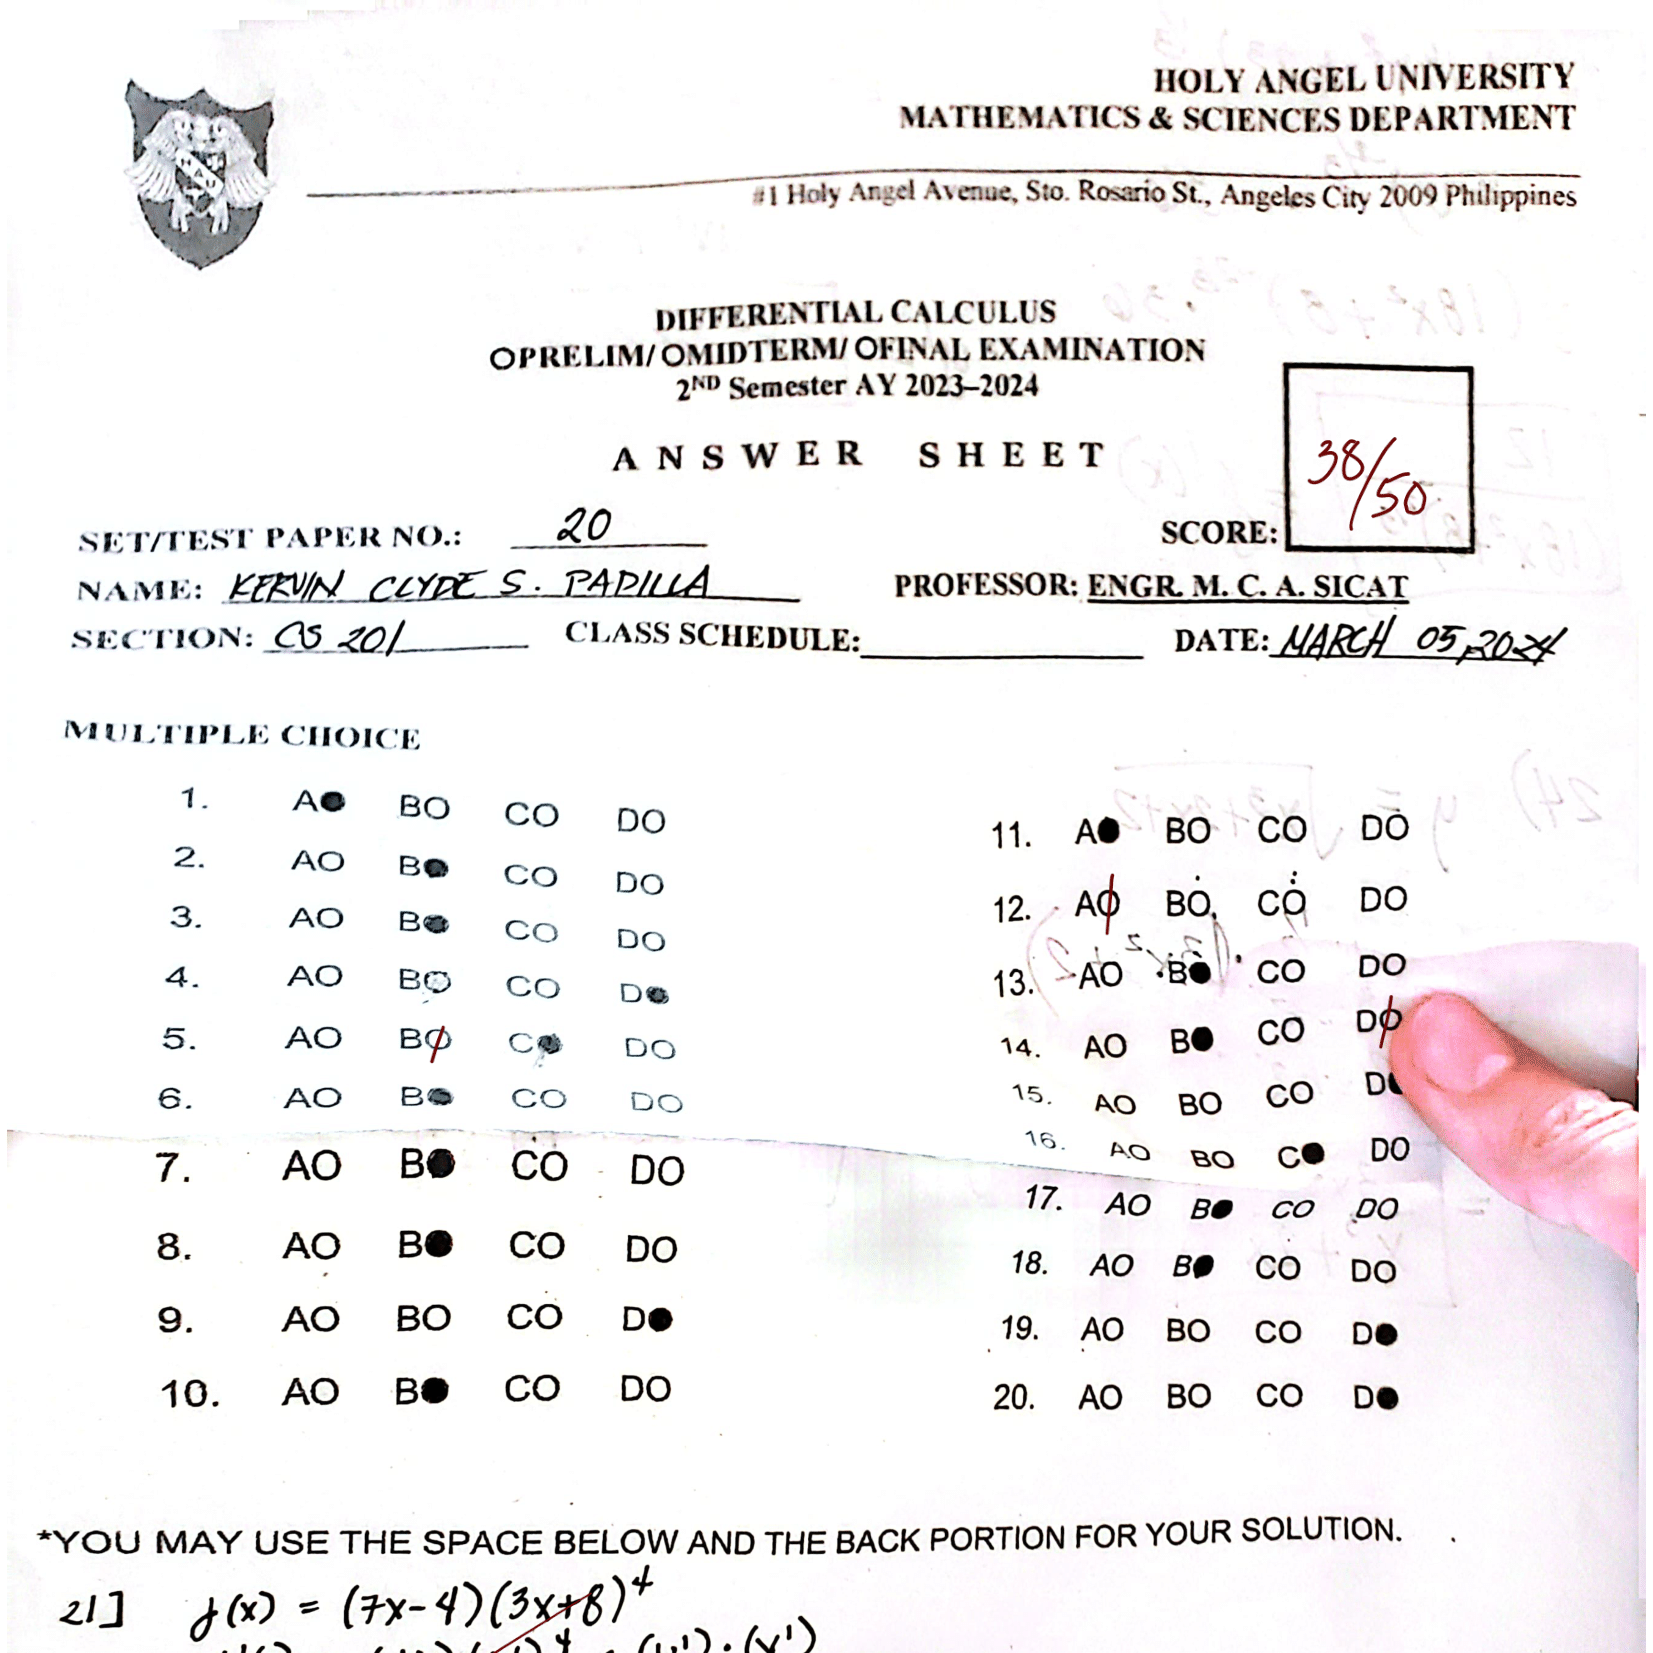 HOLY ANGEL UNIVERSITY
MATHEMATICS & SCIENCES DEPARTMENT
#1 Holy Angel Avenue, Sto. Rosario St., Angeles City 2009 Philippines
DIFFERENTIAL CALCULUS
OPRELIM/ OMIDTERM/ OFINAL EXAMINATION
2ND Semester AY 2023–2024
ANSWER SHEET
38/50
SET/TEST PAPER NO.: 20 SCORE:
NAME: KERVIN CLYDE S. PADILLA PROFESSOR: ENGR. M. C. A. SICAT
SECTION: CS 201 CLASS SCHEDULE: DATE: MARCH 05, 2024
MULTIPLE CHOICE
1. A● BO CO DO
2. AO B● CO DO
3. AO B● CO DO
4. AO BO CO D●
5. AO BO C● DO
6. AO B● CO DO
7. AO B● CO DO
8. AO B● CO DO
9. AO BO CO D●
10. AO B● CO DO
11. A● BO CO DO
12. AO BO CO DO
13. AO B● CO DO
14. AO B● CO DO
15. AO BO CO D●
16. AO BO C● DO
17. AO B● CO DO
18. AO B● CO DO
19. AO BO CO D●
20. AO BO CO D●
*YOU MAY USE THE SPACE BELOW AND THE BACK PORTION FOR YOUR SOLUTION.
21] f(x) = (7x-4)(3x+8)^4